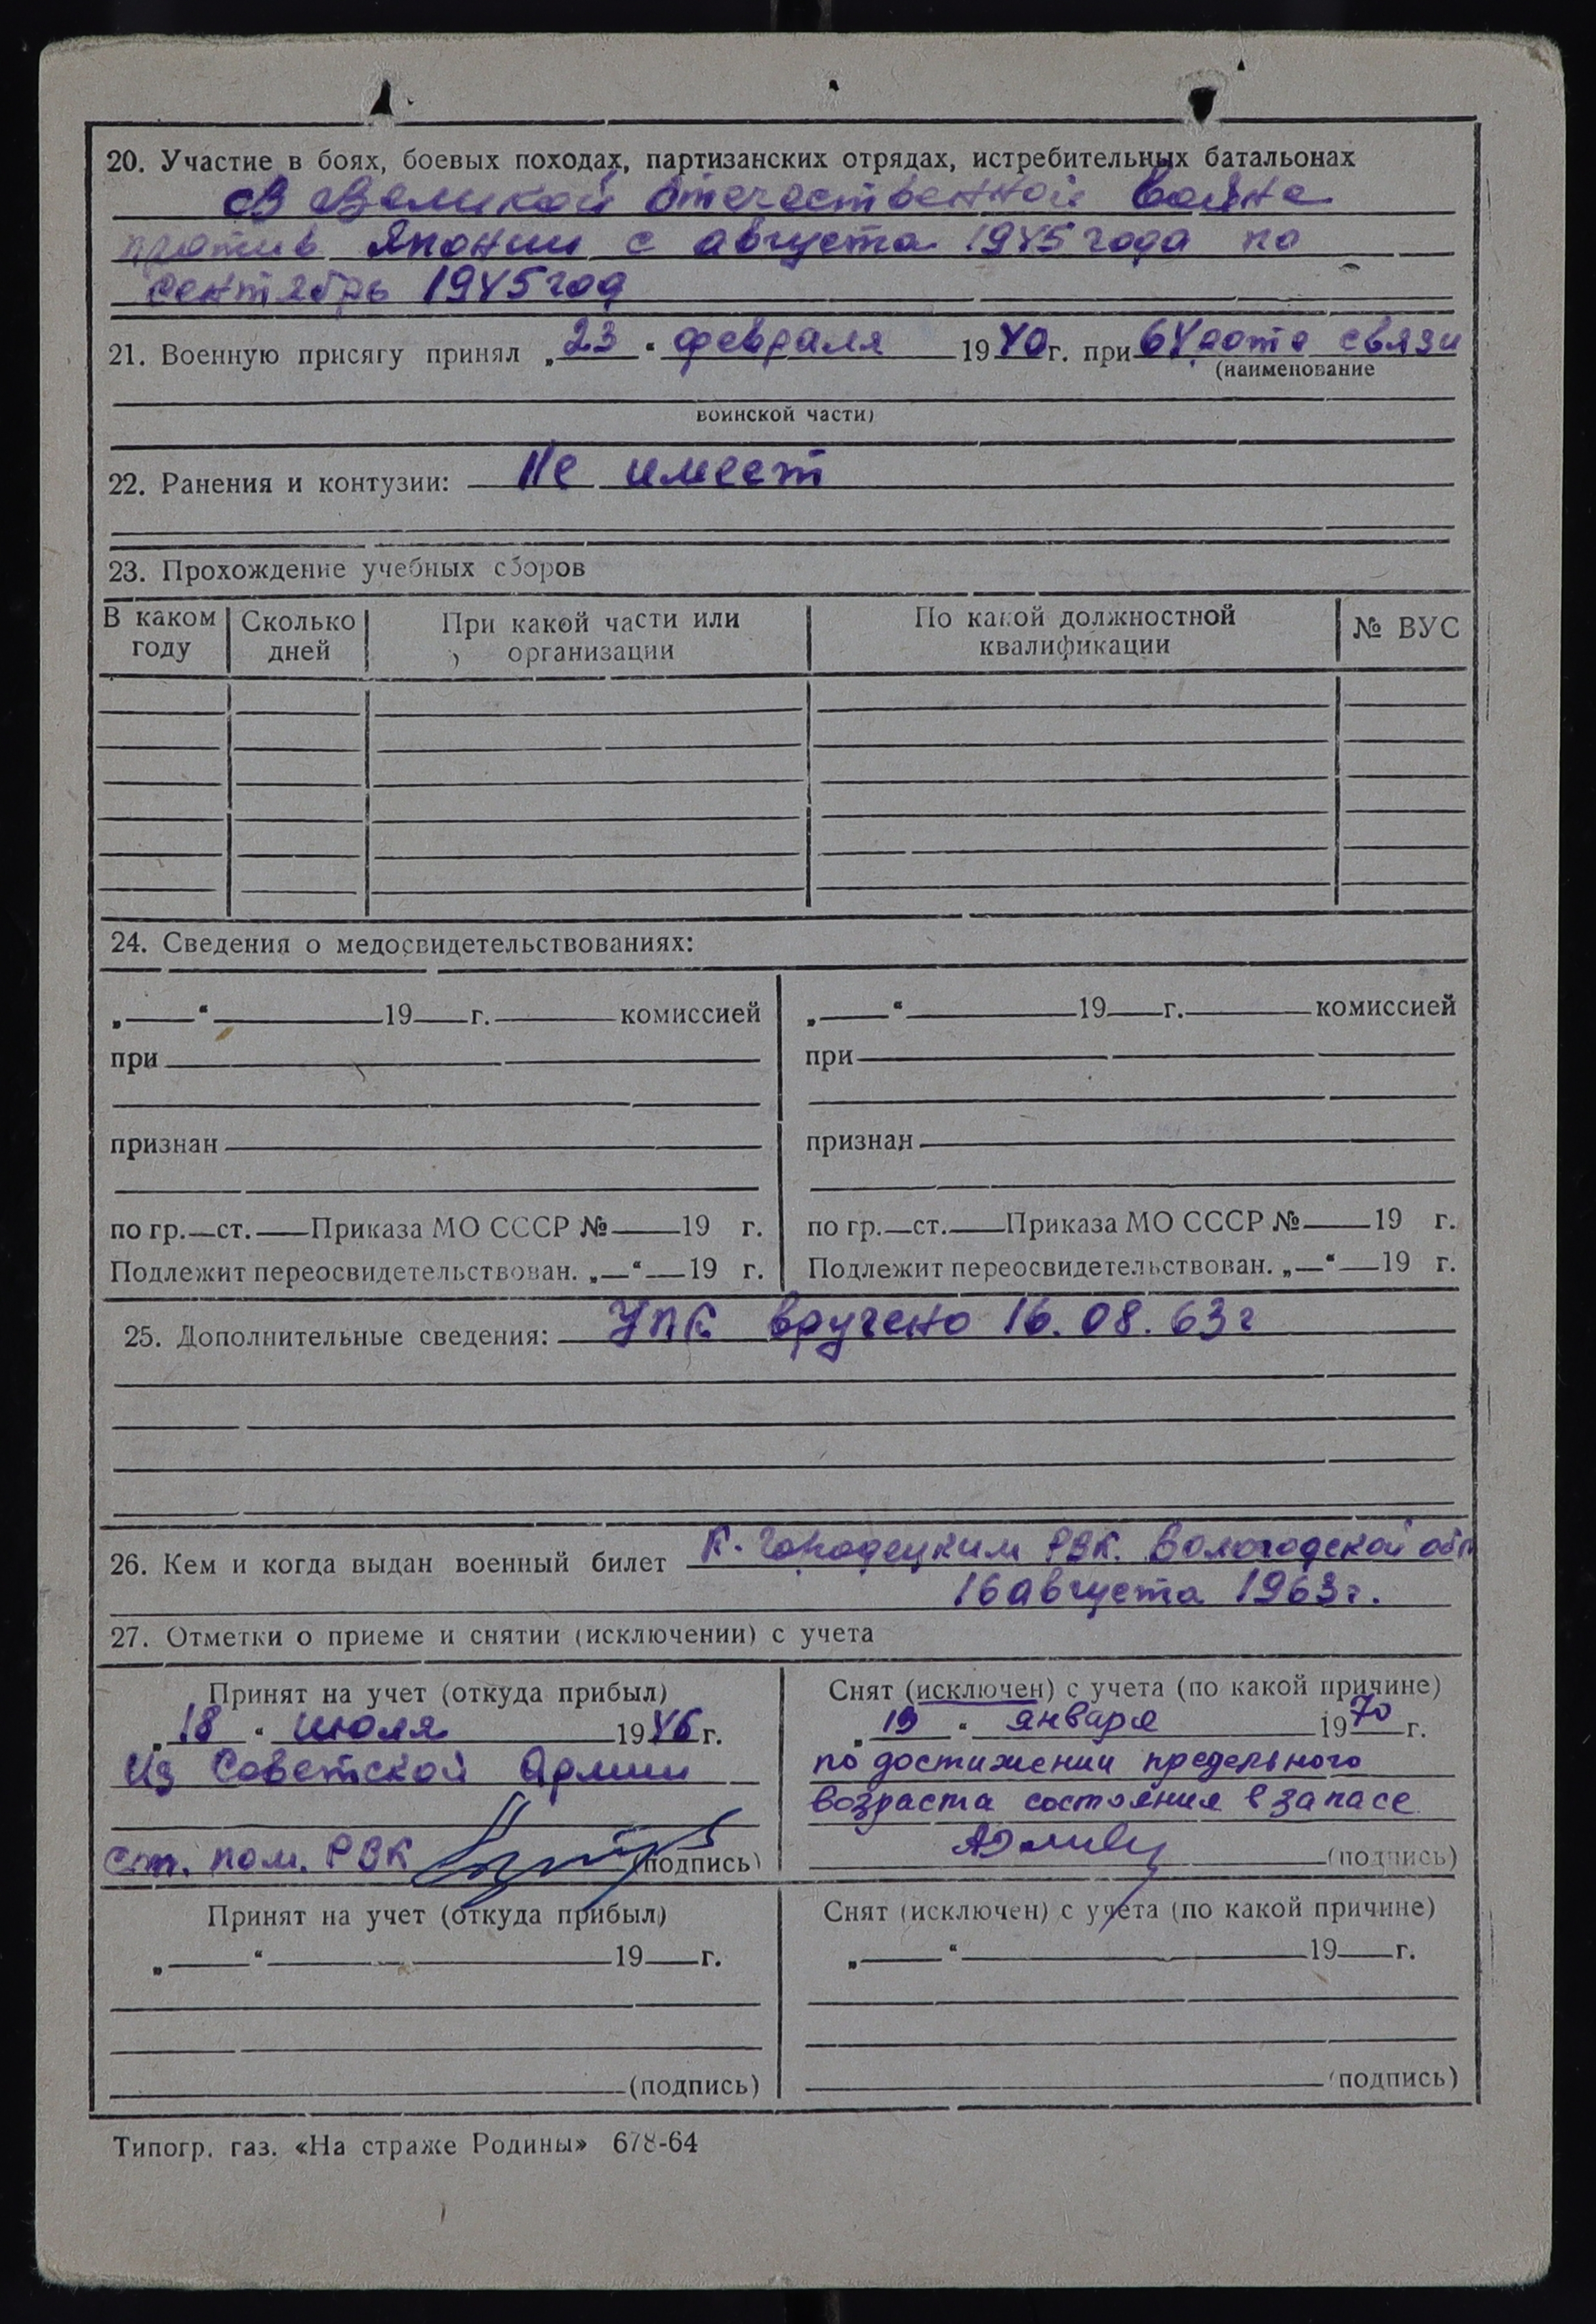 20. Участие в боях, боевых походах, партизанских отрядах, истребительных батальонах
В Великой Отечественной войне
против Японии с августа 1945 года по
сентябрь 1945 год
21. Военную присягу принял „23“ февраля 1940 г. при 64 роте связи
(наименование
воинской части)
22. Ранения и контузии: Не имеет
23. Прохождение учебных сборов
В каком году | Сколько дней | При какой части или организации | По какой должностной квалификации | № ВУС
24. Сведения о медосвидетельствованиях:
„ “ 19 г. комиссией
при
признан
по гр. ст. Приказа МО СССР № 19 г.
Подлежит переосвидетельствован. „ “ 19 г.
„ “ 19 г. комиссией
при
признан
по гр. ст. Приказа МО СССР № 19 г.
Подлежит переосвидетельствован. „ “ 19 г.
25. Дополнительные сведения: УПК вручено 16.08.63г
26. Кем и когда выдан военный билет К-Городецким РВК. Вологодской обл
16 августа 1963г.
27. Отметки о приеме и снятии (исключении) с учета
Принят на учет (откуда прибыл)
„18“ июля 1946 г.
Из Советской Армии
ст. пом. РВК (подпись)
Снят (исключен) с учета (по какой причине)
„19“ января 1970 г.
по достижении предельного
возраста состояния в запасе
(подпись)
Принят на учет (откуда прибыл)
„ “ 19 г.
(подпись)
Снят (исключен) с учета (по какой причине)
„ “ 19 г.
(подпись)
Типогр. газ. «На страже Родины» 678-64